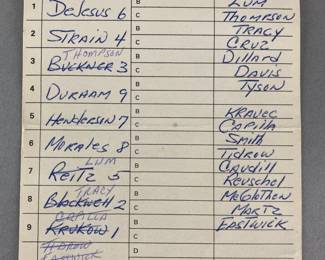 1 DeJesus 6 B Lum
C Thompson
2 Strain 4 B Tracy
C Cruz
Thompson
3 Buckner 3 B Dillard
C Davis
4 Durham 9 B Tyson
C
5 Hendersin 7 B Kravec
C Capilla
6 Morales 8 B Smith
C Tidrow
Lum
7 Reitz 5 B Caudill
C Reuschel
Tracy
8 Blackwell 2 B McGlothen
C Martz
Capilla
9 Krukow 1 B Eastwick
C
Tidrow
Eastwick D